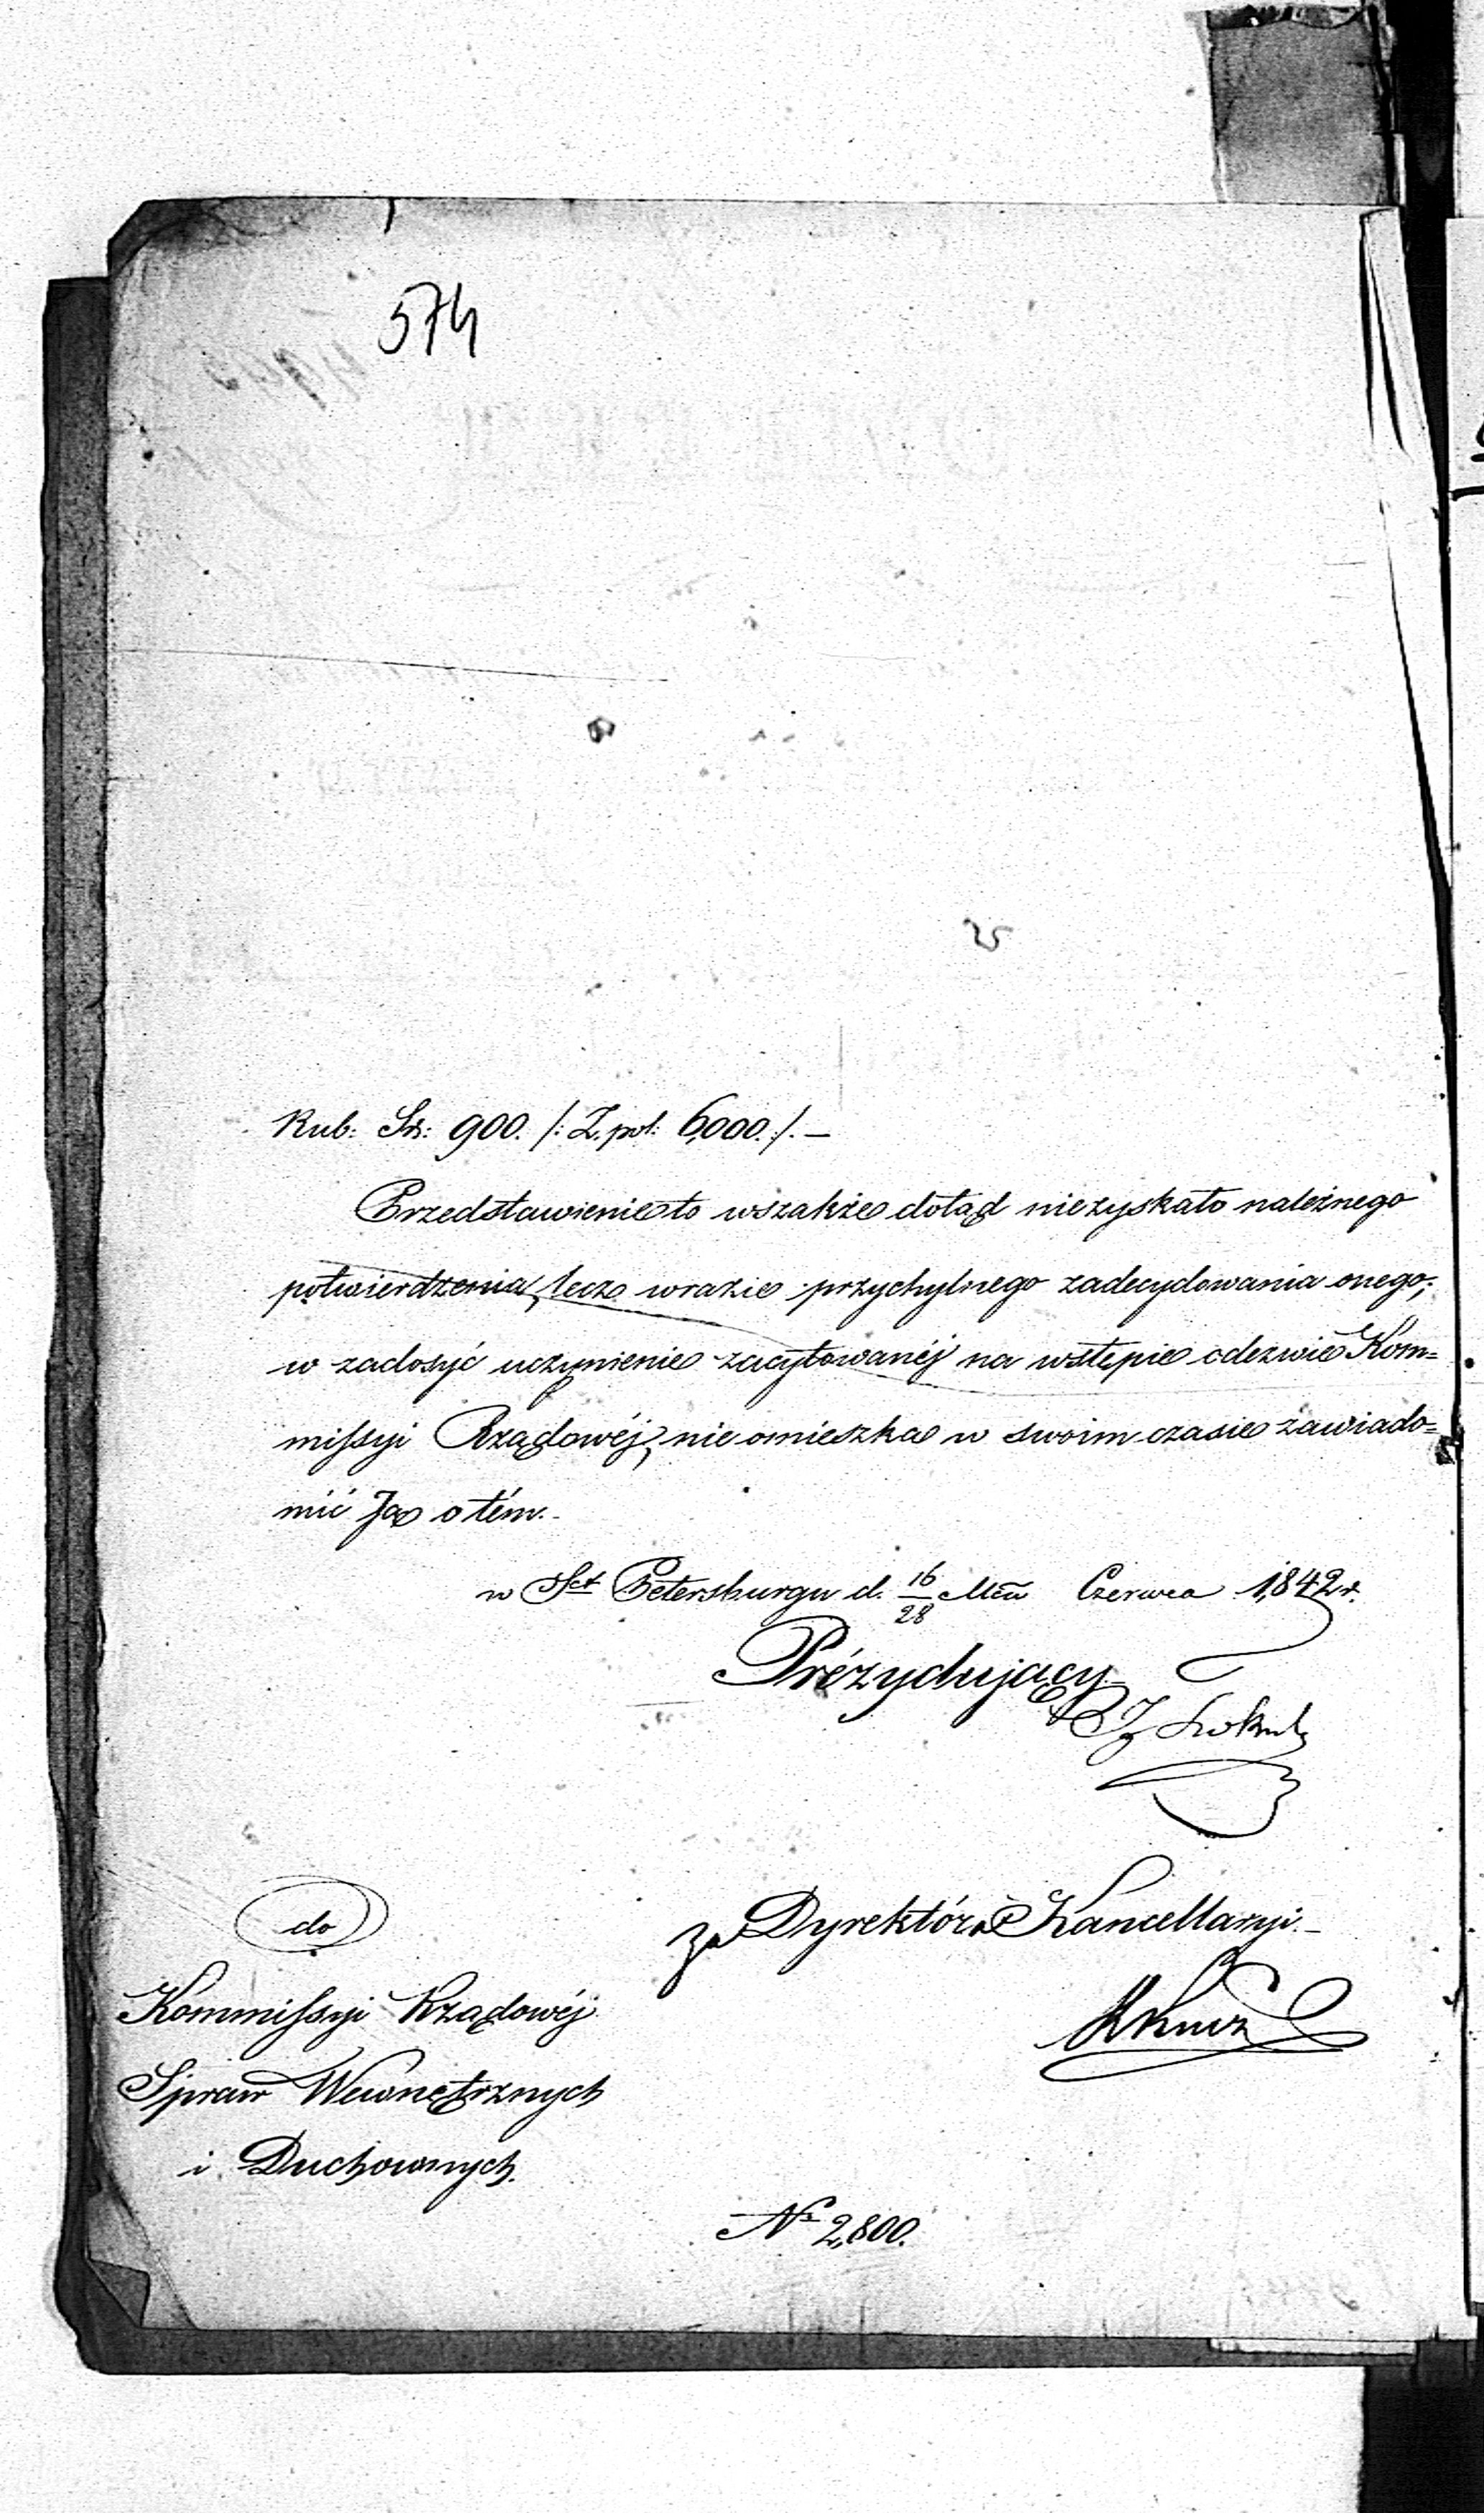 574
Rub: Sr: 900. /: Z. pol: 6,000. :/. —
Przedstawienie to wszakże dotąd niezyskało należnego
potwierdzenia, lecz wrazie przychylnego zadecydowania onego;
w zadosyć uczynienie zacytowanéj na wstępie odezwie Kom=
missyi Rządowéj, nieomieszka w swoim czasie zawiado=
mić Ją o tém.
w Sct Petersburgu d. 16/28 Mca Czerwca 1,842 r.
Prézydujący
do
za Dyrektóra Kancellaryi.
Kommissyi Rządowéj
Spraw Wewnętrznych
i Duchownych.
No 2,800.